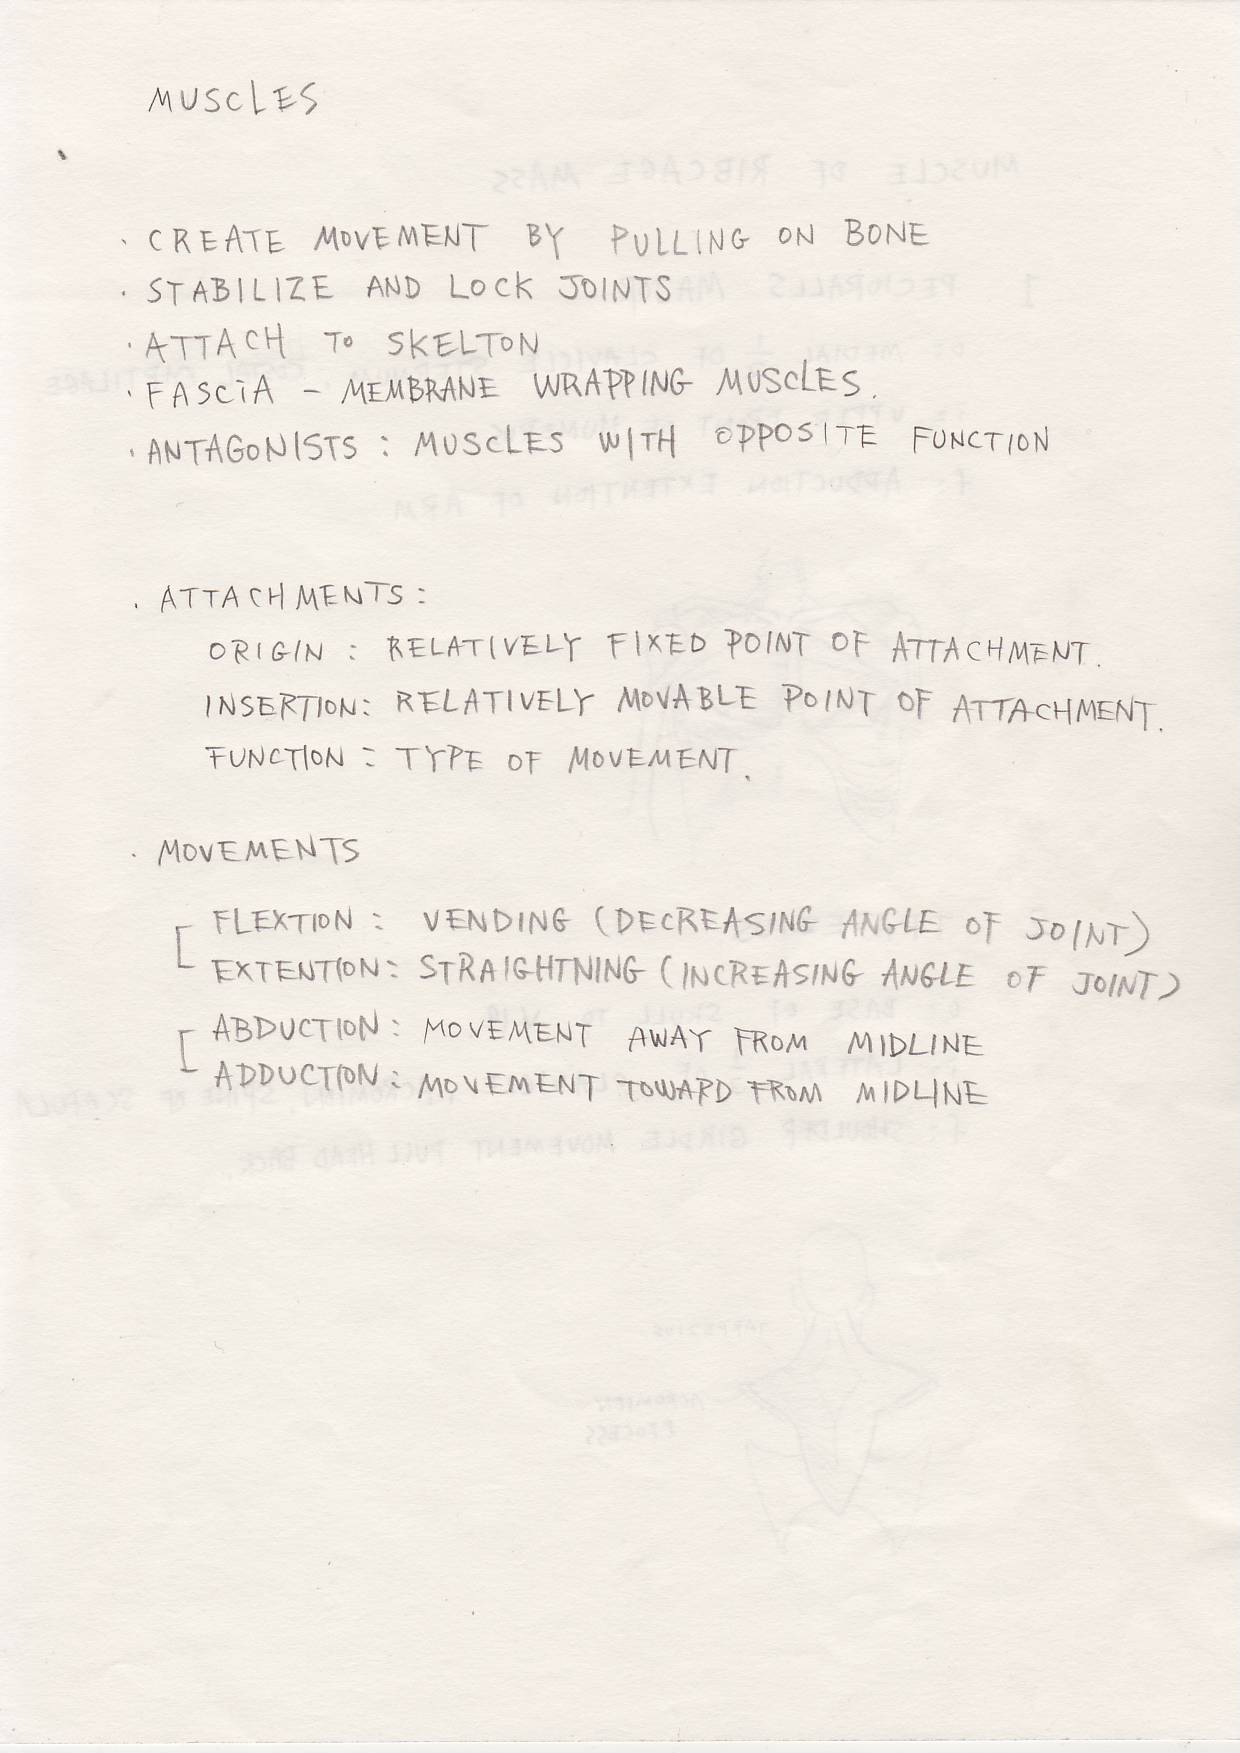 MUSCLES
· CREATE MOVEMENT BY PULLING ON BONE
· STABILIZE AND LOCK JOINTS
· ATTACH TO SKELTON
· FASCiA – MEMBRANE WRAPPING MUSCLES.
· ANTAGONISTS : MUSCLES WITH OPPOSITE FUNCTION
· ATTACHMENTS :
ORIGIN : RELATIVELY FIXED POINT OF ATTACHMENT.
INSERTION : RELATIVELY MOVABLE POINT OF ATTACHMENT.
FUNCTION : TYPE OF MOVEMENT.
· MOVEMENTS
FLEXTION : VENDING (DECREASING ANGLE OF JOINT)
EXTENTION : STRAIGHTNING (INCREASING ANGLE OF JOINT)
ABDUCTION : MOVEMENT AWAY FROM MIDLINE
ADDUCTION : MOVEMENT TOWARD FROM MIDLINE